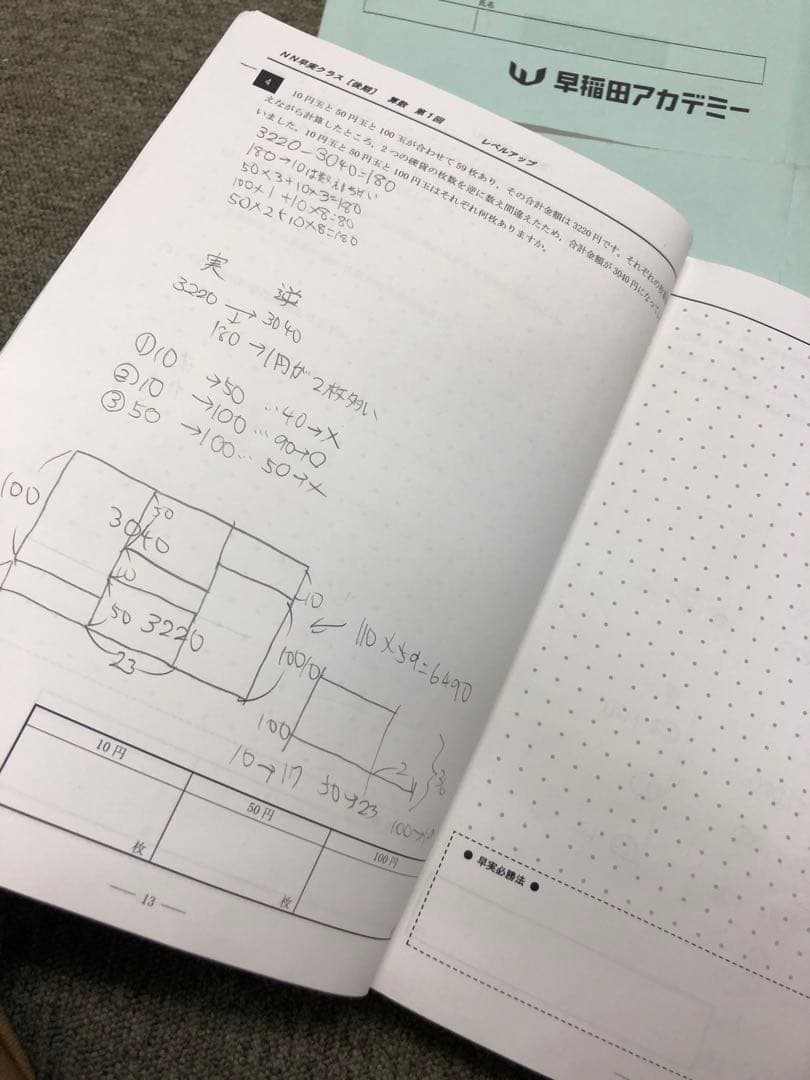 氏名
早稲田アカデミー
NN早実クラス［後期］ 算数 第1回 レベルアップ
4
10円玉と50円玉と100玉が合わせて59枚あり，その合計金額は3220円です。それぞれの
えながら計算したところ，2つの硬貨の枚数を逆に数え間違えたため，合計金額が3040円になって
いました。10円玉と50円玉と100円玉はそれぞれ何枚ありますか。
3220-3040=180
180→10は数えまちがい
50×3+10×3=180
100×1+10×8=80
50×2+10×8=180
実 逆
3220→3040
↓
180→1円が2枚多い
①10→50…40→×
②10→100…90→○
③50→100…50→×
100
50
3040
10
10
50 3220
23
110×59=6490
100
10
100
2
10→17 50→23
100→
10円
50円
100円
枚
枚
13
● 早実必勝法 ●